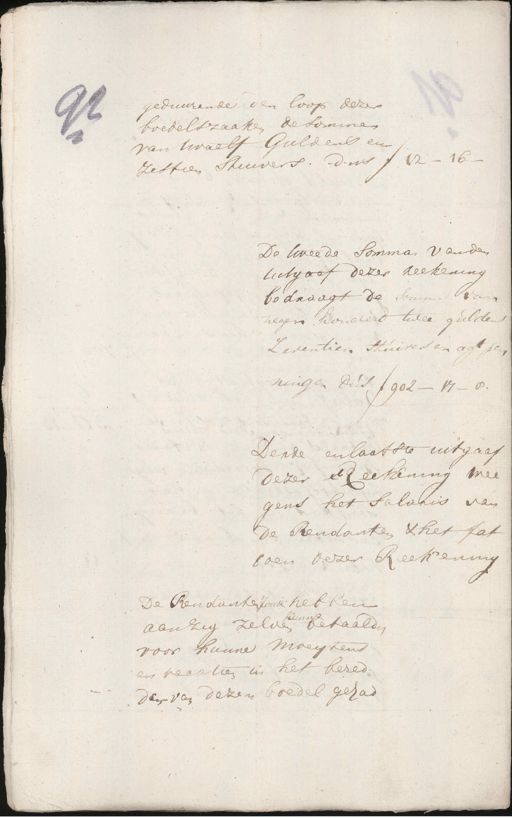 92
geduurende den loop dezer
boedelszaaken de Somma
van twaelf Guldens en
Zestien Stuivers. dus ƒ 12-16-
De tweede Somma van den
uitgaef dezer reekening
bedraagt de Somma van
negen honderd twee gulden
Zeventien Stuivers en agt pen
ningen dus ƒ 902-17-8.
Derde en laatste uitgaef
dezer Reekening wee
gens het Salaris van
de Rendanten & het fat
soen dezer Reekening
De Rendanten hebben
aan zig zelve betaald
voor hunne Moeytens
en vacatien in het bered
den van dezen boedel gehad